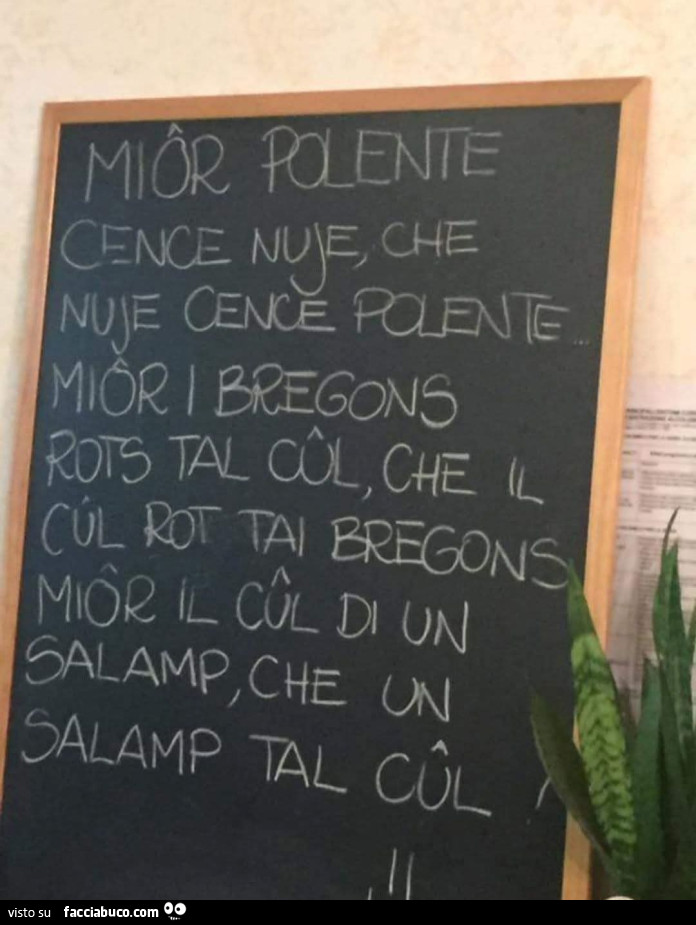 MIÔR POLENTE
CENCE NUJE, CHE
NUJE CENCE POLENTE...
MIÔR I BREGONS
ROTS TAL CÛL, CHE IL
CÛL ROT TAI BREGONS
MIÔR IL CÛL DI UN
SALAMP, CHE UN
SALAMP TAL CÛL !
visto su facciabuco.com